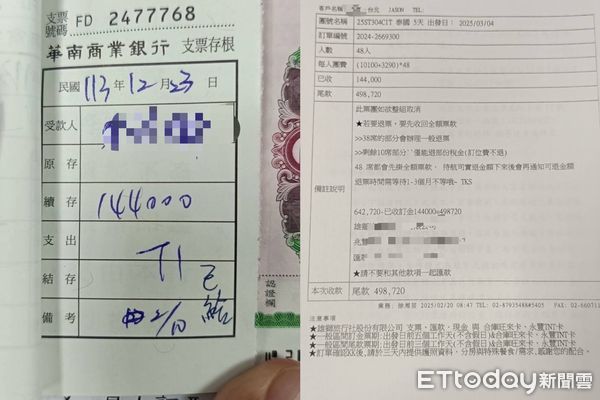 支票號碼 FD 2477768
華南商業銀行 支票存根
民國113年12月23日
受款人
原存
續存 144000
支出
結存
備考 2/10
已給
認證欄
客戶名稱 台元 JASON TEL:
團號名稱 25ST304CIT 泰國 5天 出發日: 2025/03/04
訂單編號 2024-2669300
人數 48人
每人團費 (10100+3290)*48
已收 144,000
尾款 498,720
備註說明
此票團如欲整組取消
★若要退票, 要先收回全額票款
>>38席的部分會辦理一般退票
>>剩餘10席部分~僅能退部份稅金(訂位費不退)
48 席都會先掛全額票款. 待航司實退金額下來後會再通知可退金額
退票時間需等待1-3個月不等哦~ TKS
642,720-已收訂金144000=498720
雄獅
兆豐
匯
★請不要和其他款項一起匯款
本次收款 498,720
業務: 徐 2025/02/20 08:47 TEL: 02-87935488#5405 FAX: 02-660711
注意事項
★雄獅旅行社股份有限公司 支票、匯款、現金 與 合庫旺來卡、永豐TNT卡
★一般區間訂金票期: 出發日前五個工作天(不含假日)&合庫旺來卡、永豐TNT卡
★一般區間尾款票期: 出發日前三個工作天(不含假日)&合庫旺來卡、永豐TNT卡
★訂單確認KK後,請於三天內提供護照資料、分房與特殊餐食/需求,感謝您的配合。
ETtoday新聞雲